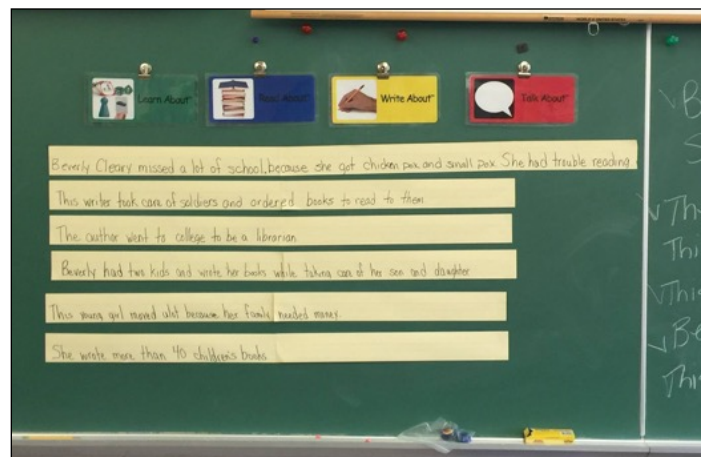 Learn About
Read About
Write About
Talk About
Beverly Cleary missed a lot of school, because she got chicken pox and small pox. She had trouble reading.
This writer took care of soldiers and ordered books to read to them.
The author went to college to be a librarian.
Beverly had two kids and wrote her books while taking care of her son and daughter.
This young girl moved alot because her family needed money.
She wrote more than 40 children's books.
B
S
Th
Thi
This
Be
This